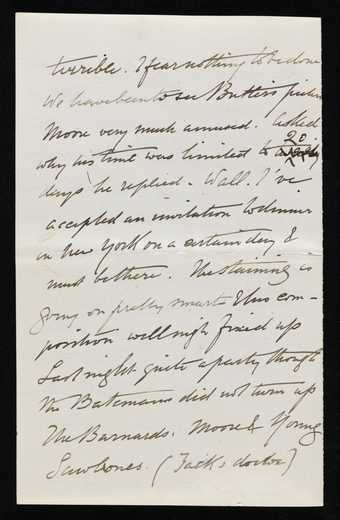 terrible. I fear nothing to be done
We have been to see Butler's picture
Moore very much amused. Asked
why his time was limited to 20
days he replied - Wall. I've
accepted an invitation to dinner
in New York on a certain day &
must be there. The staining is
going on pretty smart & his com-
position well nigh fixed up
Last night quite a party though
the Batemans did not turn up
The Barnards. Moore & Young
Sawbones. (Jack's doctor)